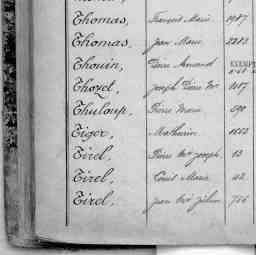 Thomas, François Marie 1987
Thomas, Jean Marie 2283
Thouin, Pierre Armand EXEMPT
Thozet, Joseph Pierre Me 1087
Thuloup, Pierre Marie 590
Tiger, Mathurin 1602
Tirel, Pierre Joseph 13
Tirel, Louis Marie 42
Tirel, Jean 756